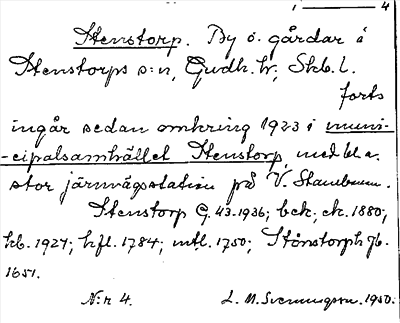 1 4
Stenstorp. By o. gårdar i
Stenstorps s:n, Gudh. hr, Skb. l.
forts
ingår sedan omkring 1923 i muni-
-cipalsamhället Stenstorp, med bl.a.
stor järnvägsstation på V. Stambanan.
Stenstorp G. 43. 1936; bck; ek. 1880;
hb. 1927; hfl. 1784; mtl. 1750; Stönstorph jb.
1651.
N:r 4. L. M. Svenungson. 1950.